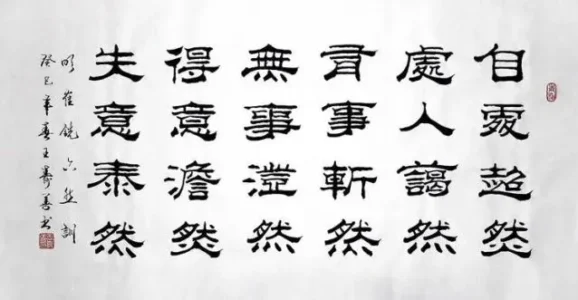 自處超然
處人藹然
有事斬然
無事澄然
得意澹然
失意泰然
明崔銑六然訓
癸巳年春王